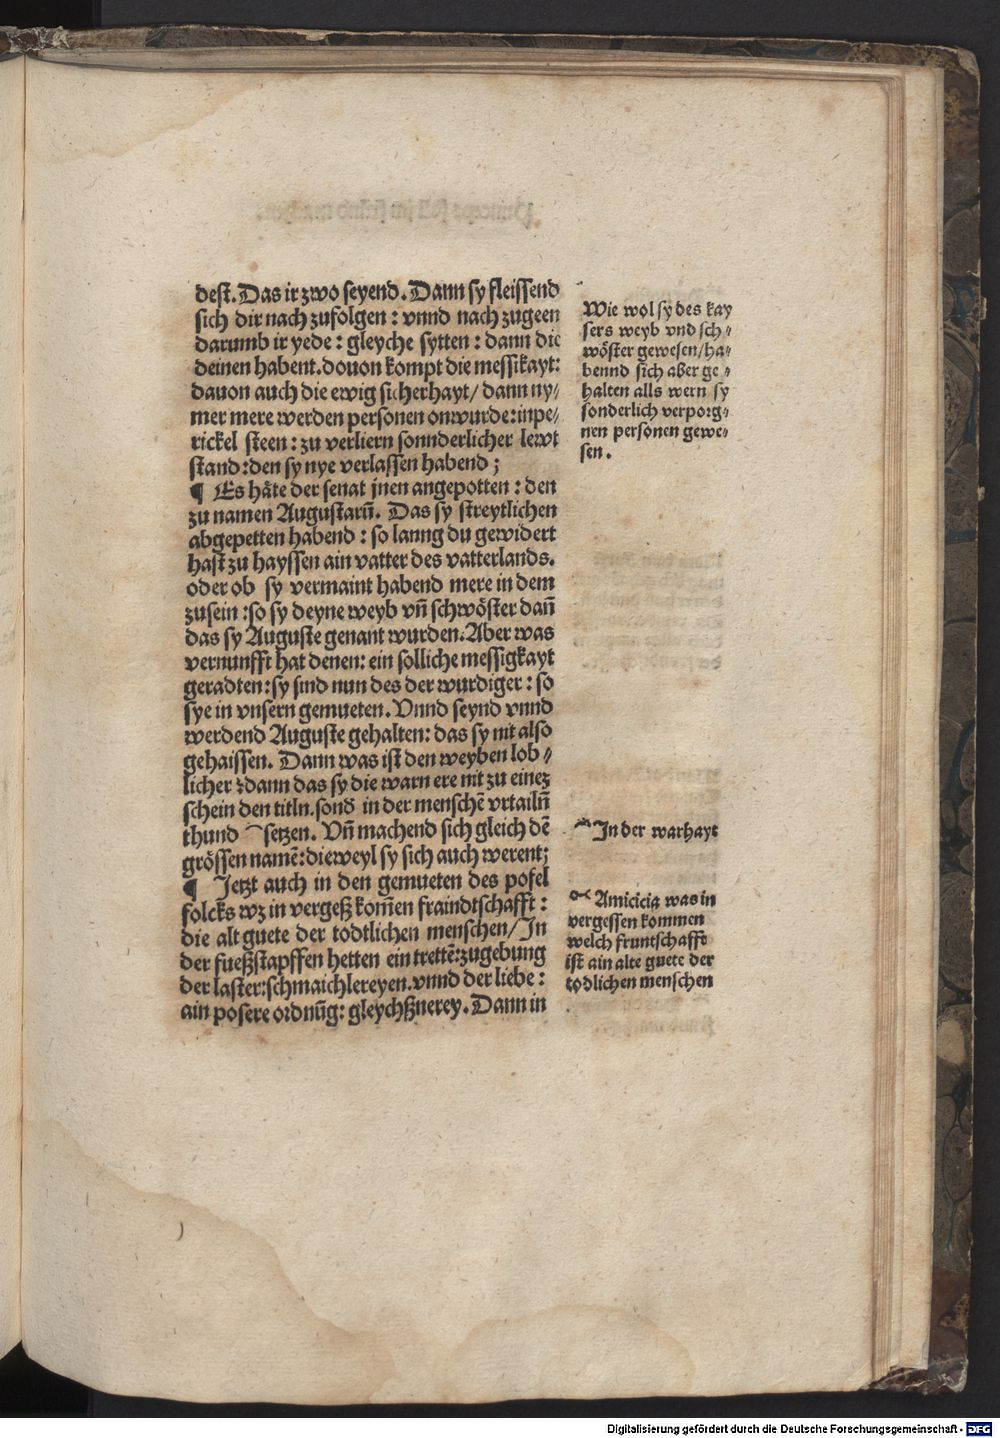 dest. Das ir zwo seyend. Dann sy fleissend
sich dir nach zufolgen : vnnd nach zugeen
darumb ir yede : gleyche sytten : dann die
deinen habent. douon kompt die messikayt:
dauon auch die ewig sicherhayt/ dann ny⸗
mer mere werden personen onwurde: in pe⸗
rickel steen : zu verliern sonnderlicher lewt
stand : den sy nye verlassen habend ;
¶ Es håte der senat jnen angepotten : den
zu namen Augustarū. Das sy streytlichen
abgepetten habend : so lanng du gewidert
hast zu hayssen ain vatter des vatterlands.
oder ob sy vermaint habend mere in dem
zusein : so sy deyne weyb vñ schwöster dañ
das sy Auguste genant wurden. Aber was
vernunfft hat denen: ein solliche messigkayt
geradten : sy sind nun des der wurdiger : so
sye in vnsern gemueten. Vnnd seynd vnnd
werdend Auguste gehalten : das sy nit also
gehaissen. Dann was ist den weyben lob⸗
licher : dann das sy die warn ere nit zu einez
schein den titln. sonđ in der menschē vrtailñ
thund ⁀setzen. Vñ machend sich gleich dē
grössen namē : dieweyl sy sich auch werent;
¶ Jetzt auch in den gemueten des pofel
folcks wz in vergeß kom̄en fraindtschafft :
die alt guete der todtlichen menschen/ In
der fueßstapffen hetten ein trettē: zugebung
der laster: schmaichlereyen. vnnd der liebe :
ain posere ordnūg: gleychßnerey. Dann in
Wie wol sy des kay
sers weyb vnd sch⸗
wöster gewesen/ ha⸗
bennd sich aber ge⸗
halten alls wern sy
sonderlich verporg⸗
nen personen gewe⸗
sen.
⁀In der warhayt
Amicicia was in
vergessen kommen
welch fruntschafft
ist ain alte guete der
todlichen menschen
Digitalisierung gefördert durch die Deutsche Forschungsgemeinschaft - DFG